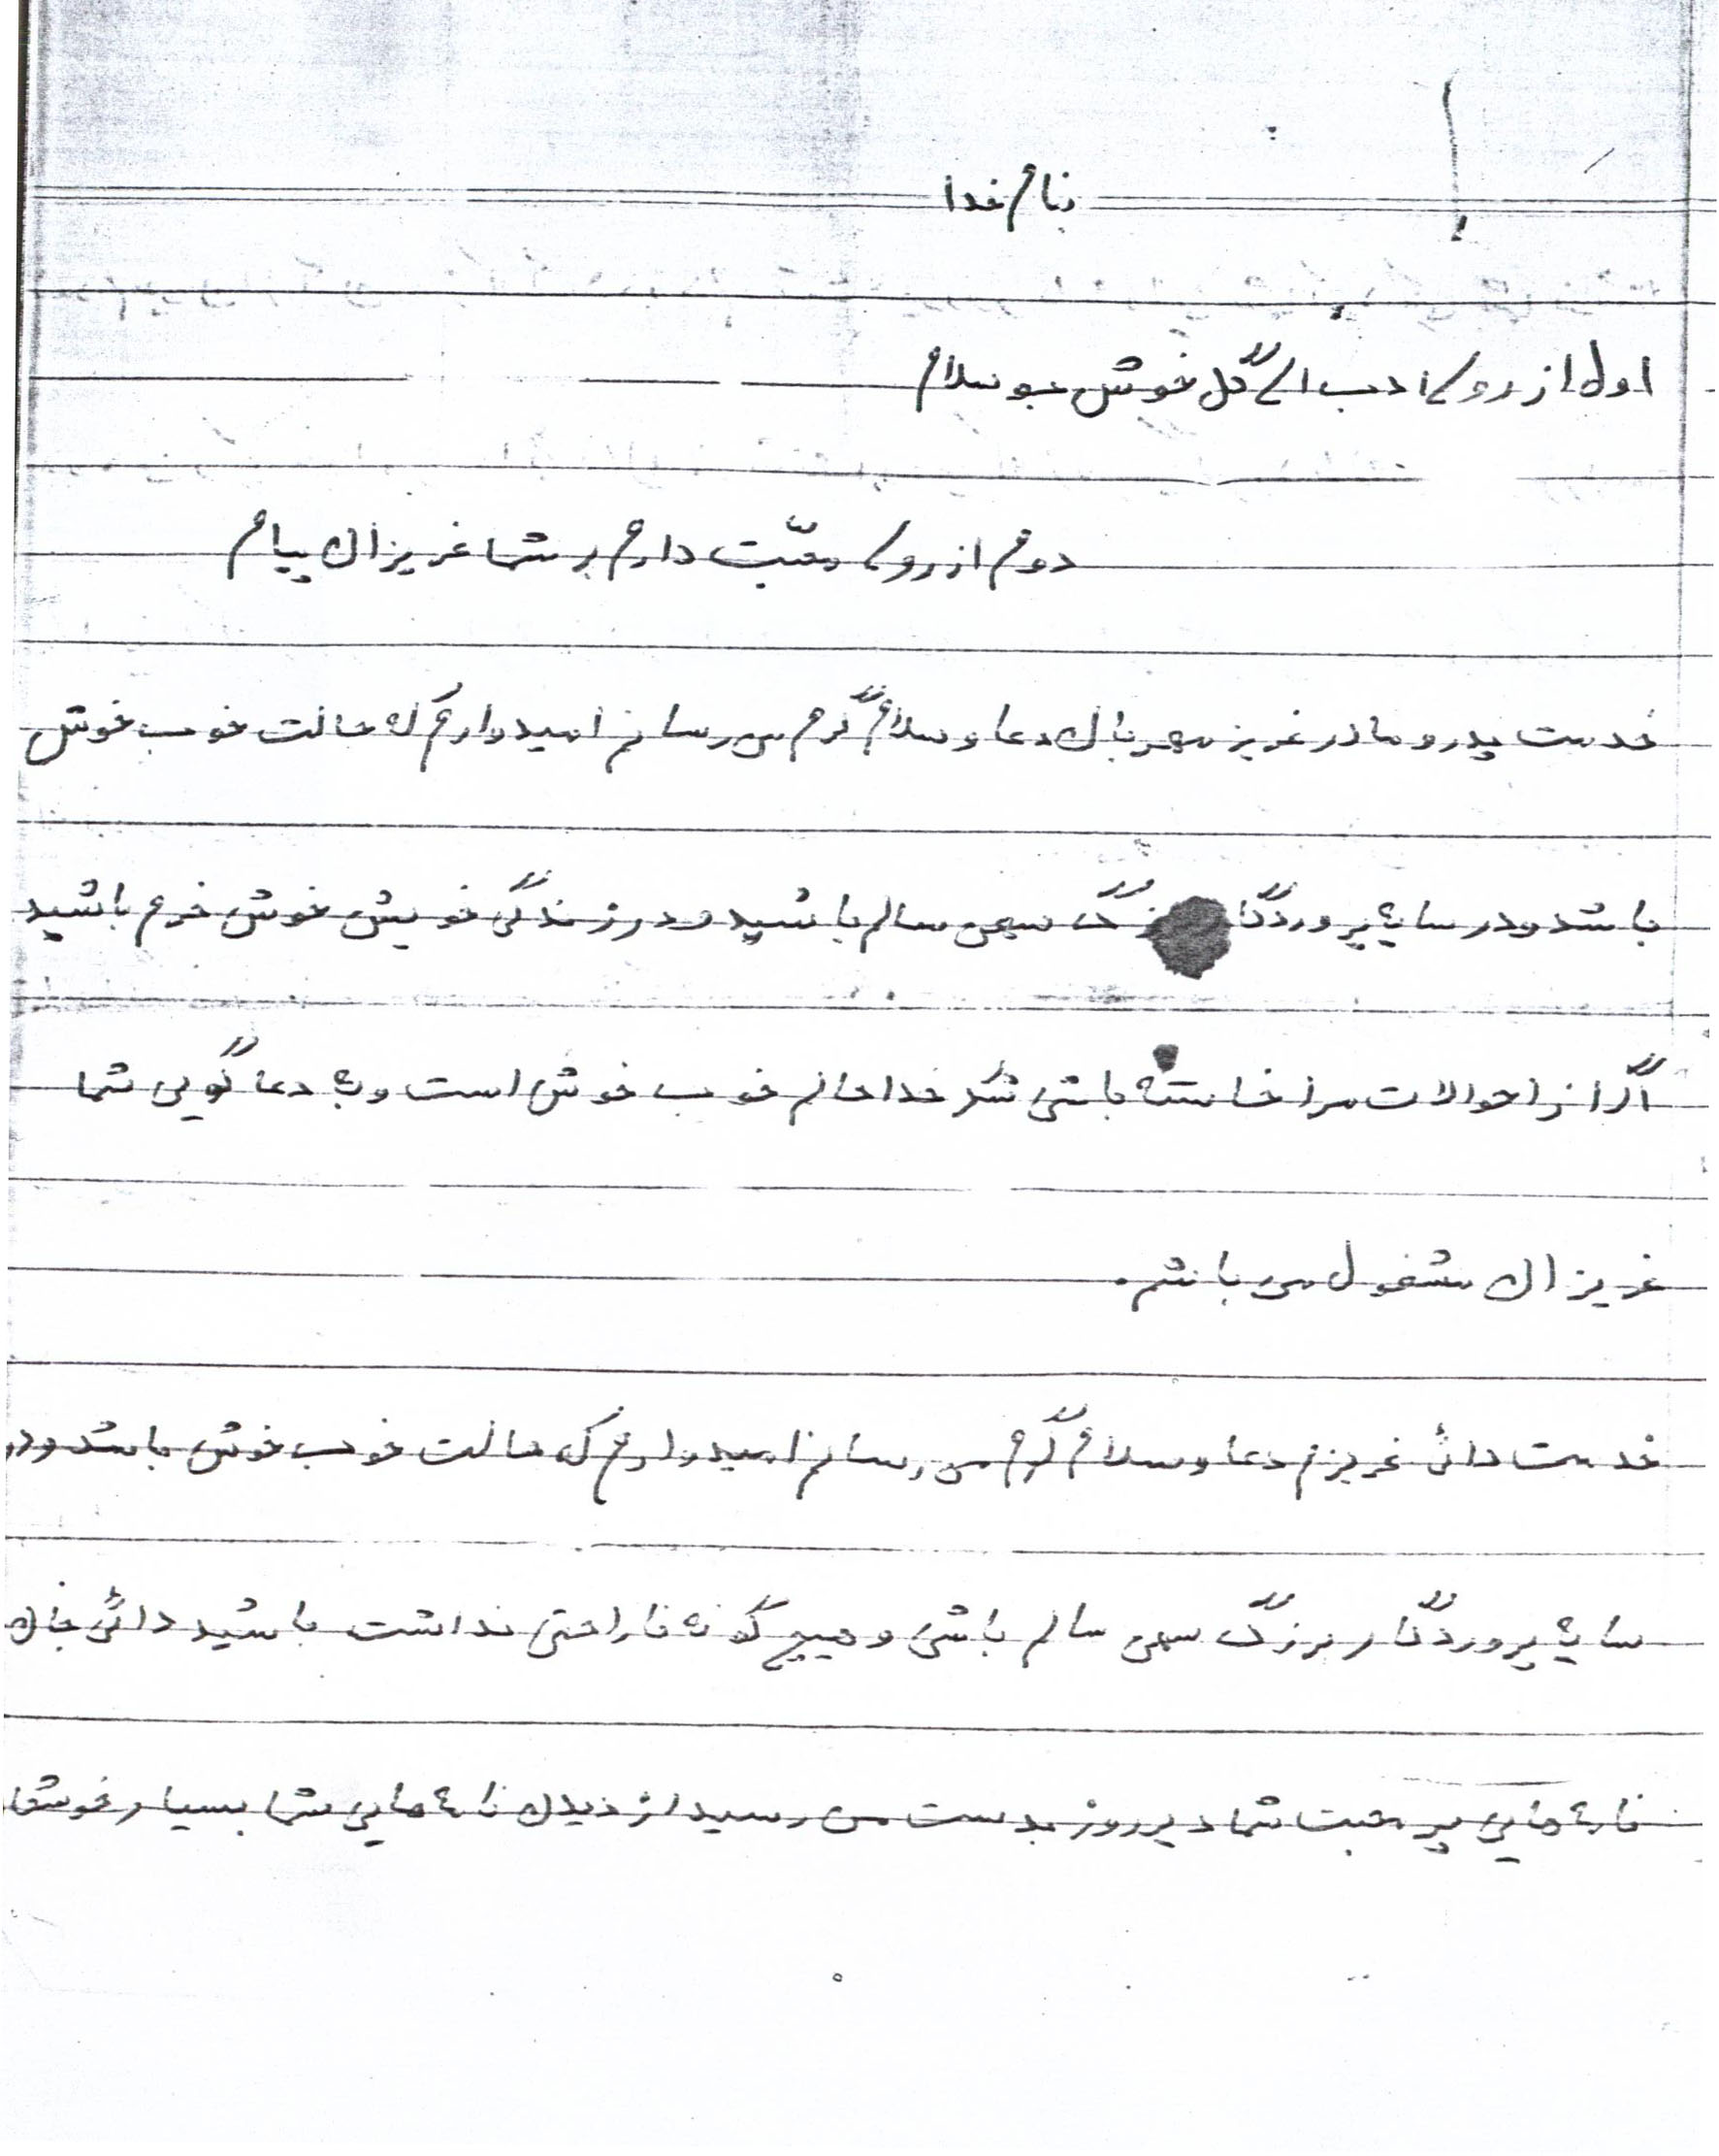 بنام خدا
اول از روی ادب ای گل خوش بو سلام
دوم از روی محبّت دارم بر شما عزیزان پیام
خدمت پدر و مادر عزیز مهربان دعا و سلام گرم می رسانم امیدوارم که حالت خوب خوش
باشد و در سایه پروردگا سهی سالم باشید و در زندگی خویش خوش خرم باشید
اگر از احوالات مرا خاسته باشی شکر خدا حالم خوب خوش است و به دعا گویی شما
عزیزان مشغول می باشم.
خدمت دائی عزیزم دعا و سلام گرم می رسانم امیدوارم که حالت خوب خوش باشد و در
سایه پروردگار بزرگ سهی سالم باشی و هیچ گونه ناراحتی نداشت باشید دائی جان
نامه هایی پر محبت شما دیر روز بدست من رسید از دیدن نامه هایی شما بسیار خوشحا